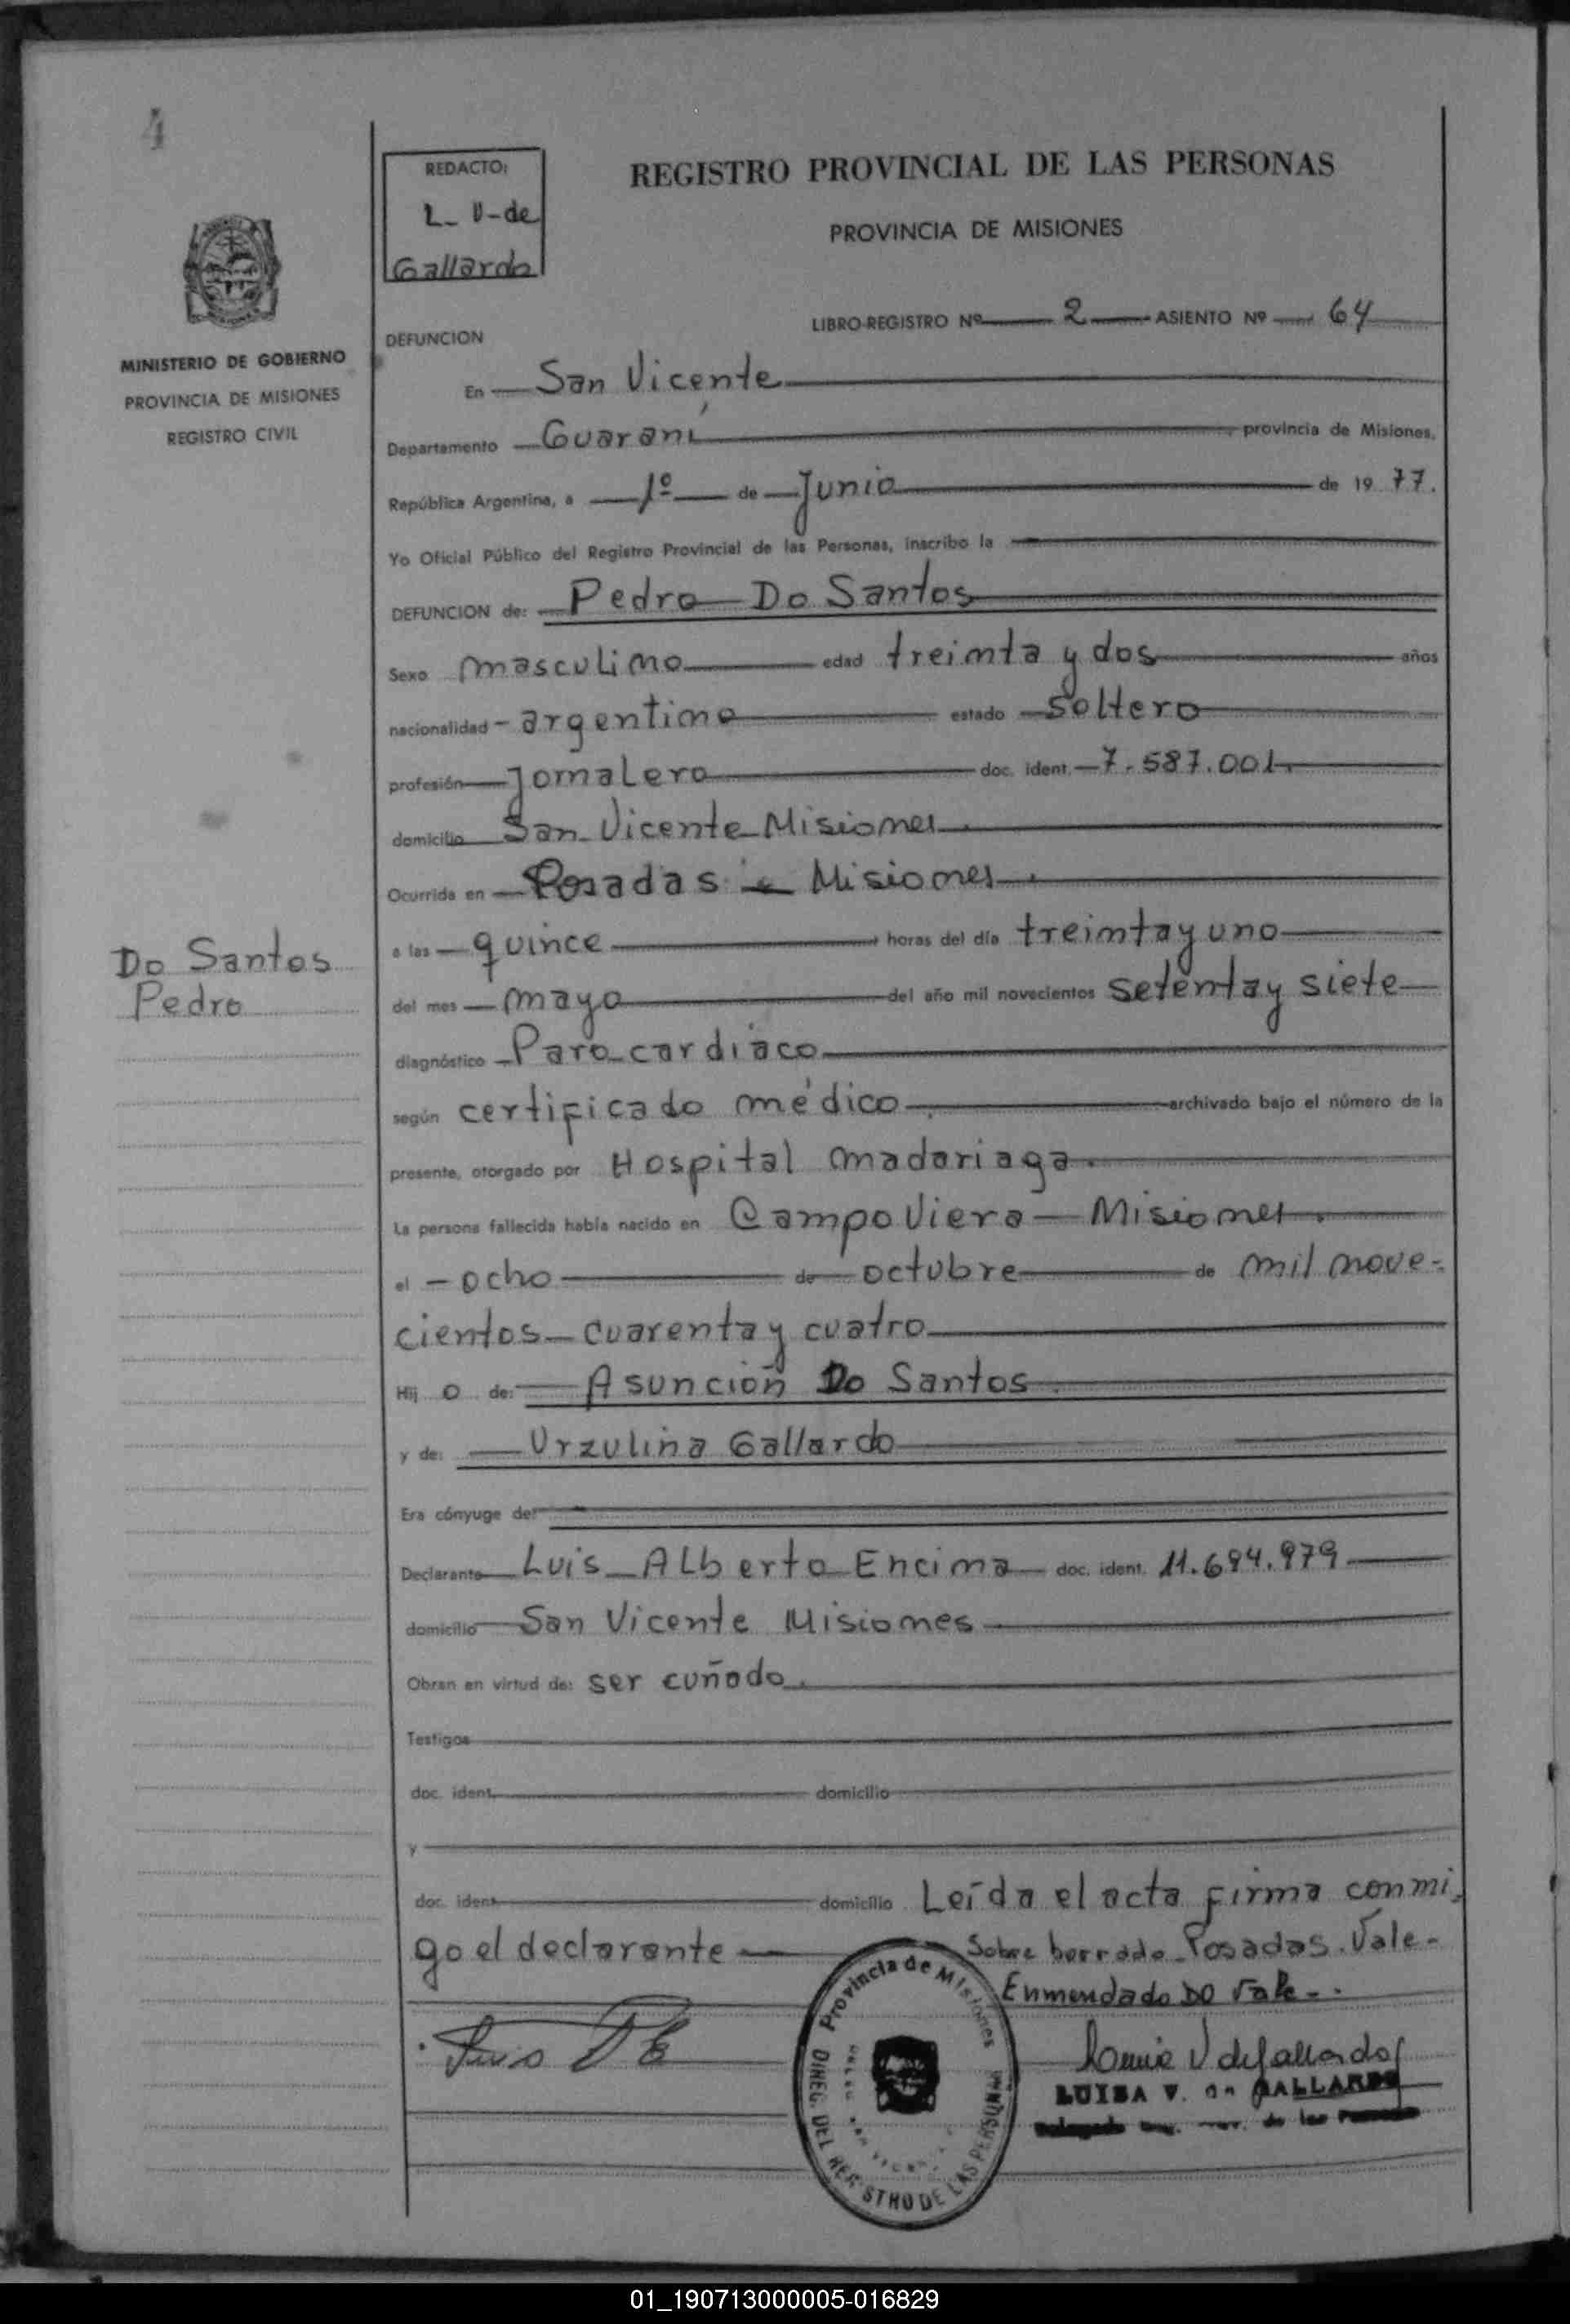 4
REDACTO:
L- V-de
Gallardo
REGISTRO PROVINCIAL DE LAS PERSONAS
PROVINCIA DE MISIONES
MINISTERIO DE GOBIERNO
PROVINCIA DE MISIONES
REGISTRO CIVIL
LIBRO-REGISTRO Nº 2 ASIENTO Nº 64
DEFUNCION
En San Vicente
Departamento Guaraní provincia de Misiones,
República Argentina, a 1º de Junio de 1977.
Yo Oficial Público del Registro Provincial de las Personas, inscribo la
DEFUNCION de: Pedro Do Santos
Sexo masculino edad treinta y dos años
nacionalidad argentino estado soltero
profesión jornalero doc. ident. 7.587.001.
domicilio San Vicente Misiones.
Ocurrida en Posadas - Misiones.
a las quince horas del día treinta y uno
del mes mayo del año mil novecientos setenta y siete
diagnóstico Paro cardiaco
según certificado médico archivado bajo el número de la
presente, otorgado por Hospital madariaga.
La persona fallecida había nacido en Campo Viera - Misiones.
el ocho de octubre de mil nove-
cientos cuarenta y cuatro
Hijo de: Asunción Do Santos
y de: Urzulina Gallardo
Era cónyuge de:
Declarante Luis Alberto Encina doc. ident. 11.694.979
domicilio San Vicente Misiones
Obran en virtud de: ser cuñado.
Testigos
doc. ident. domicilio
y
doc. ident. domicilio Leída el acta firma conmi-
go el declarante
Sobre borrado Posadas. Vale-
Enmendado DO Vale-.
Do Santos
Pedro
Luis D E
Provincia de Misiones
DIREC. DEL REGISTRO DE LAS PERSONAS
Luisa V de Gallardo
LUISA V. de GALLARDO
01_190713000005-016829